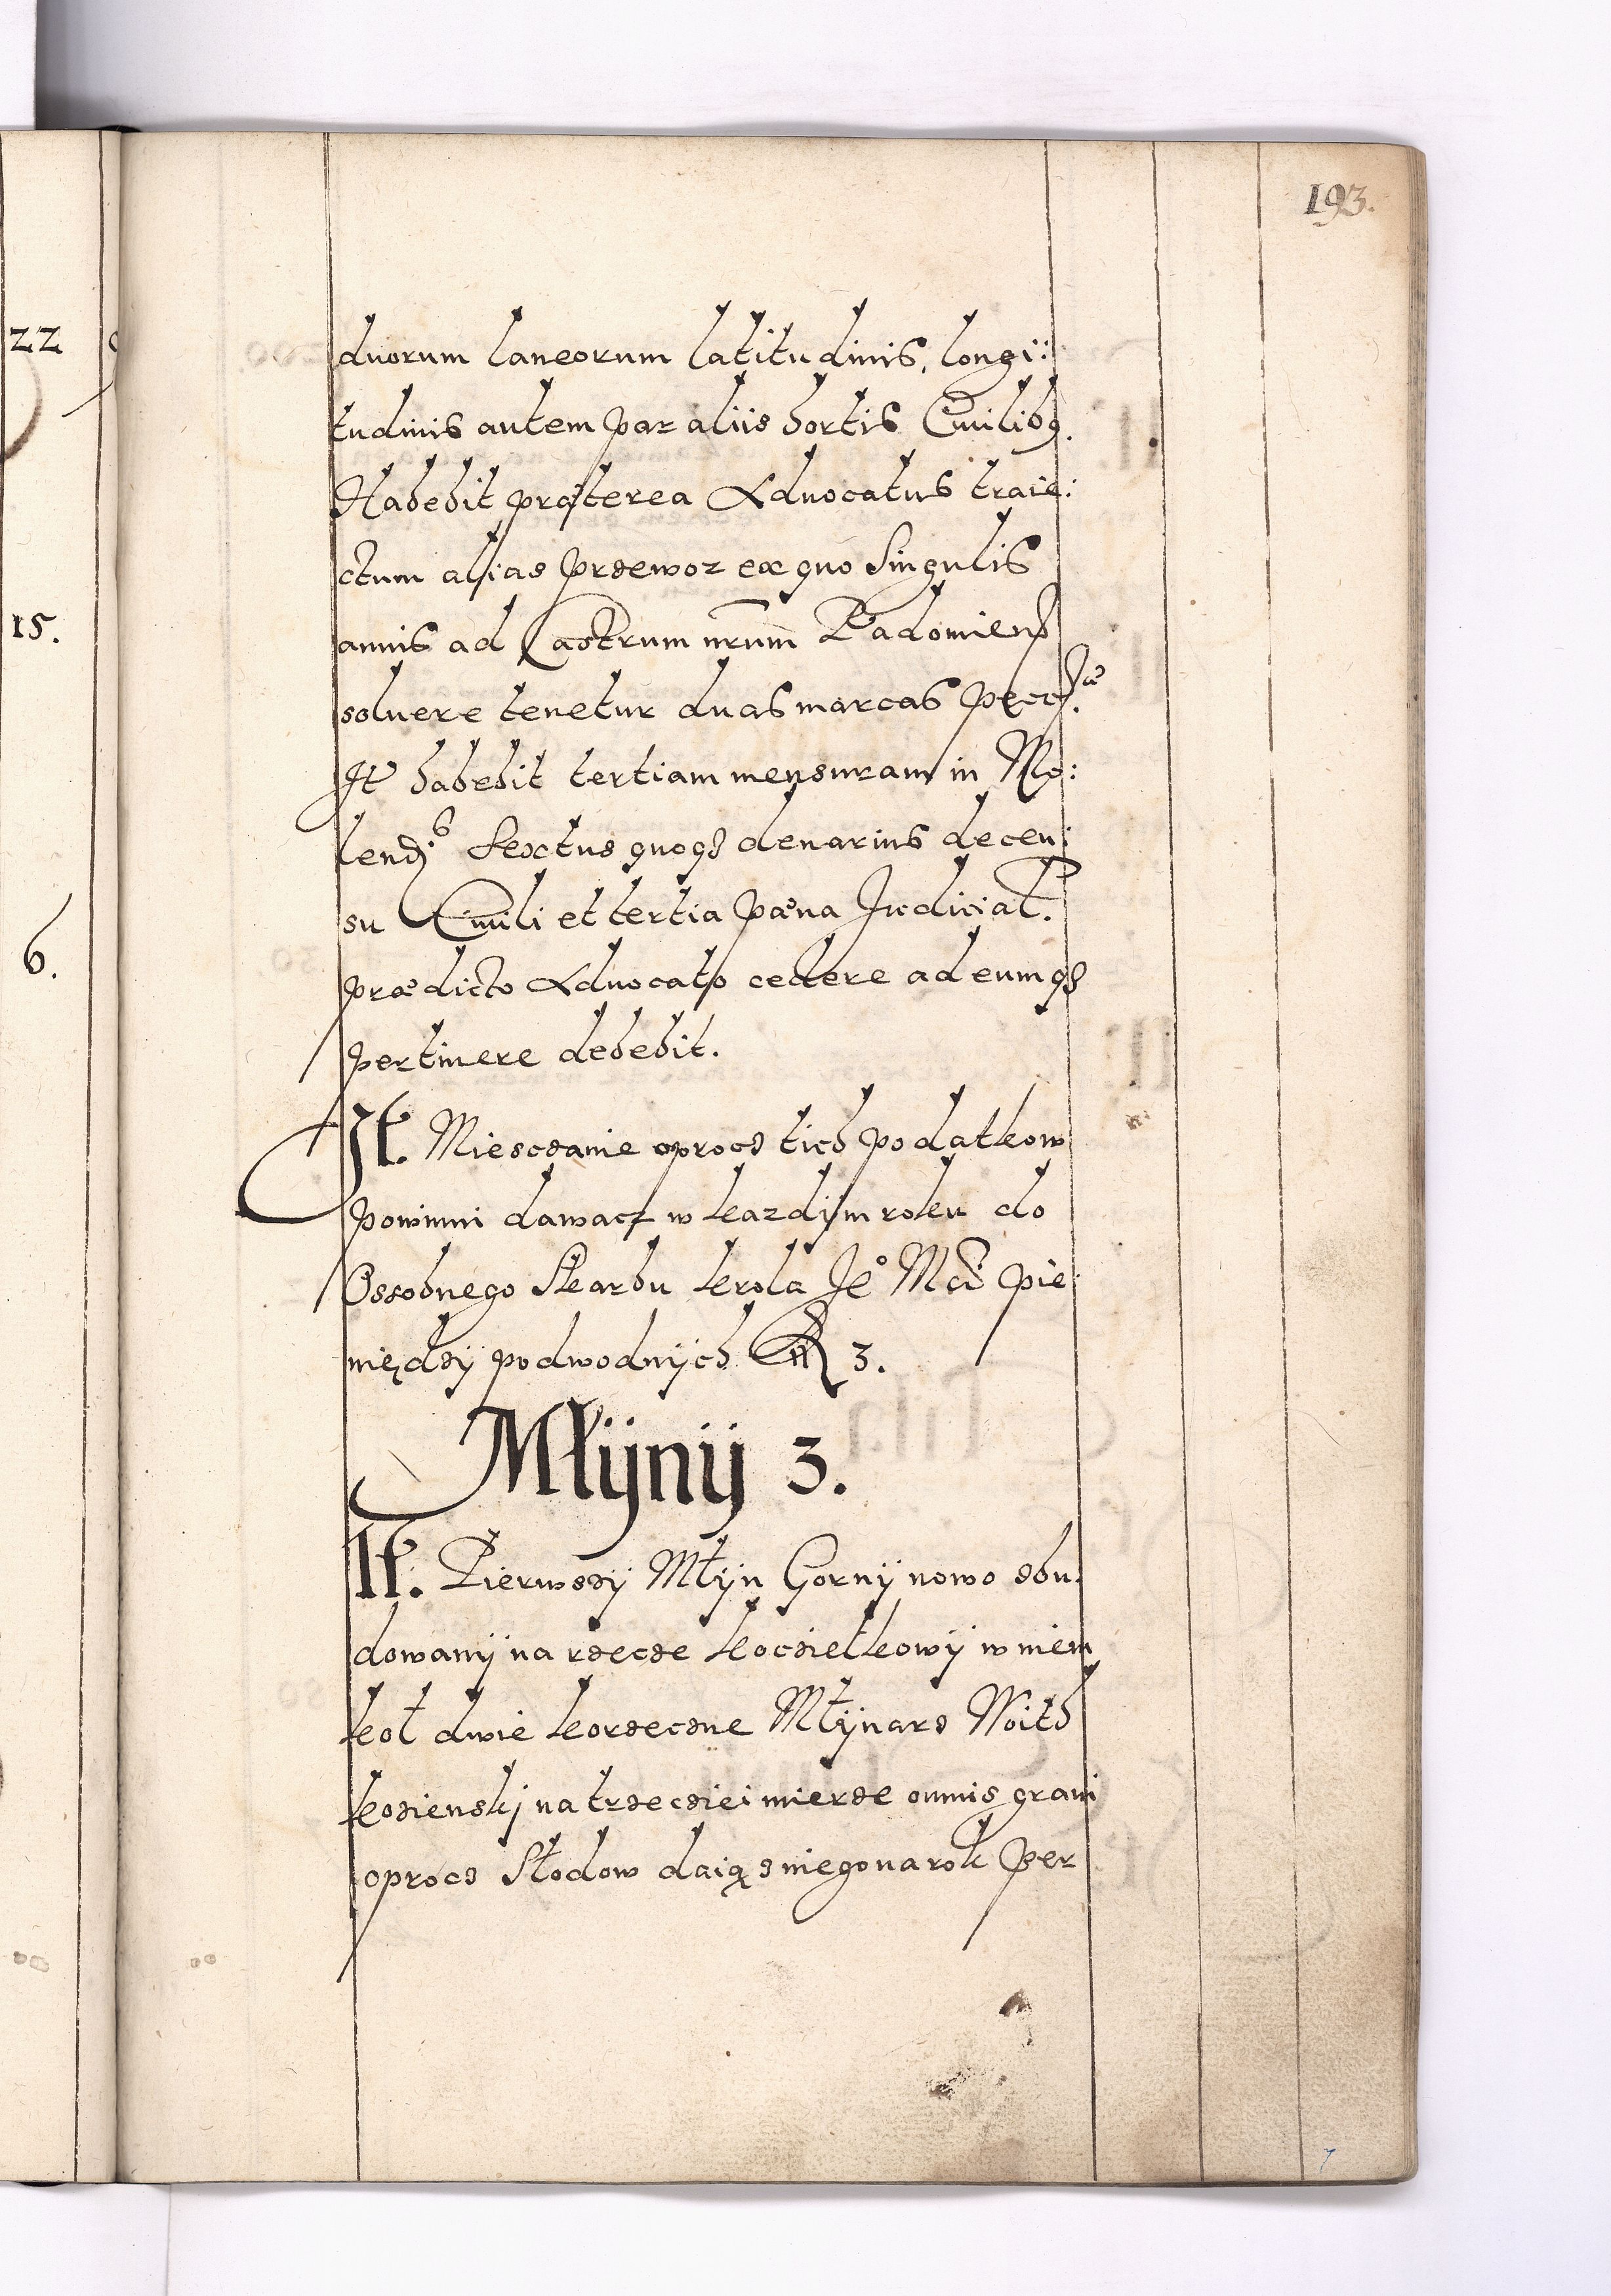 193.
duorum laneorum latitudinis, longi:
tudinis autem par aliis hortis Ciuilibq.
Habebit præterea Aduocatus traie:
ctum alias przewoz ex quo singulis
annis ad Castrum nrum Radomiens
soluere tenetur duas marcas pecc:
It habebit tertiam mensuram in Mo:
lend: Sextus quoqz denarius de cen:
su Ciuili et tertia pæna Judicial.
prædicto Aduocato cedere ad eumqz
pertinere debebit.
It. Miesczanie oprocz tich podatkow
powinni dawacz w kazdijm roku do
Ossobnego Skarbu krola Je° Mci pie:
niędzij podwodnijch 3.
Młijnij 3.
It. Pierwszij Młijn Gornij nowo zbu:
dowanij na rzecze Koczielkowij w niem
koł dwie korzeczne Młijnarz Woith
Kozienskij na trzecziei mierze omnis grani
oprocz Słodow daią z niego na rok per
22
15.
6.